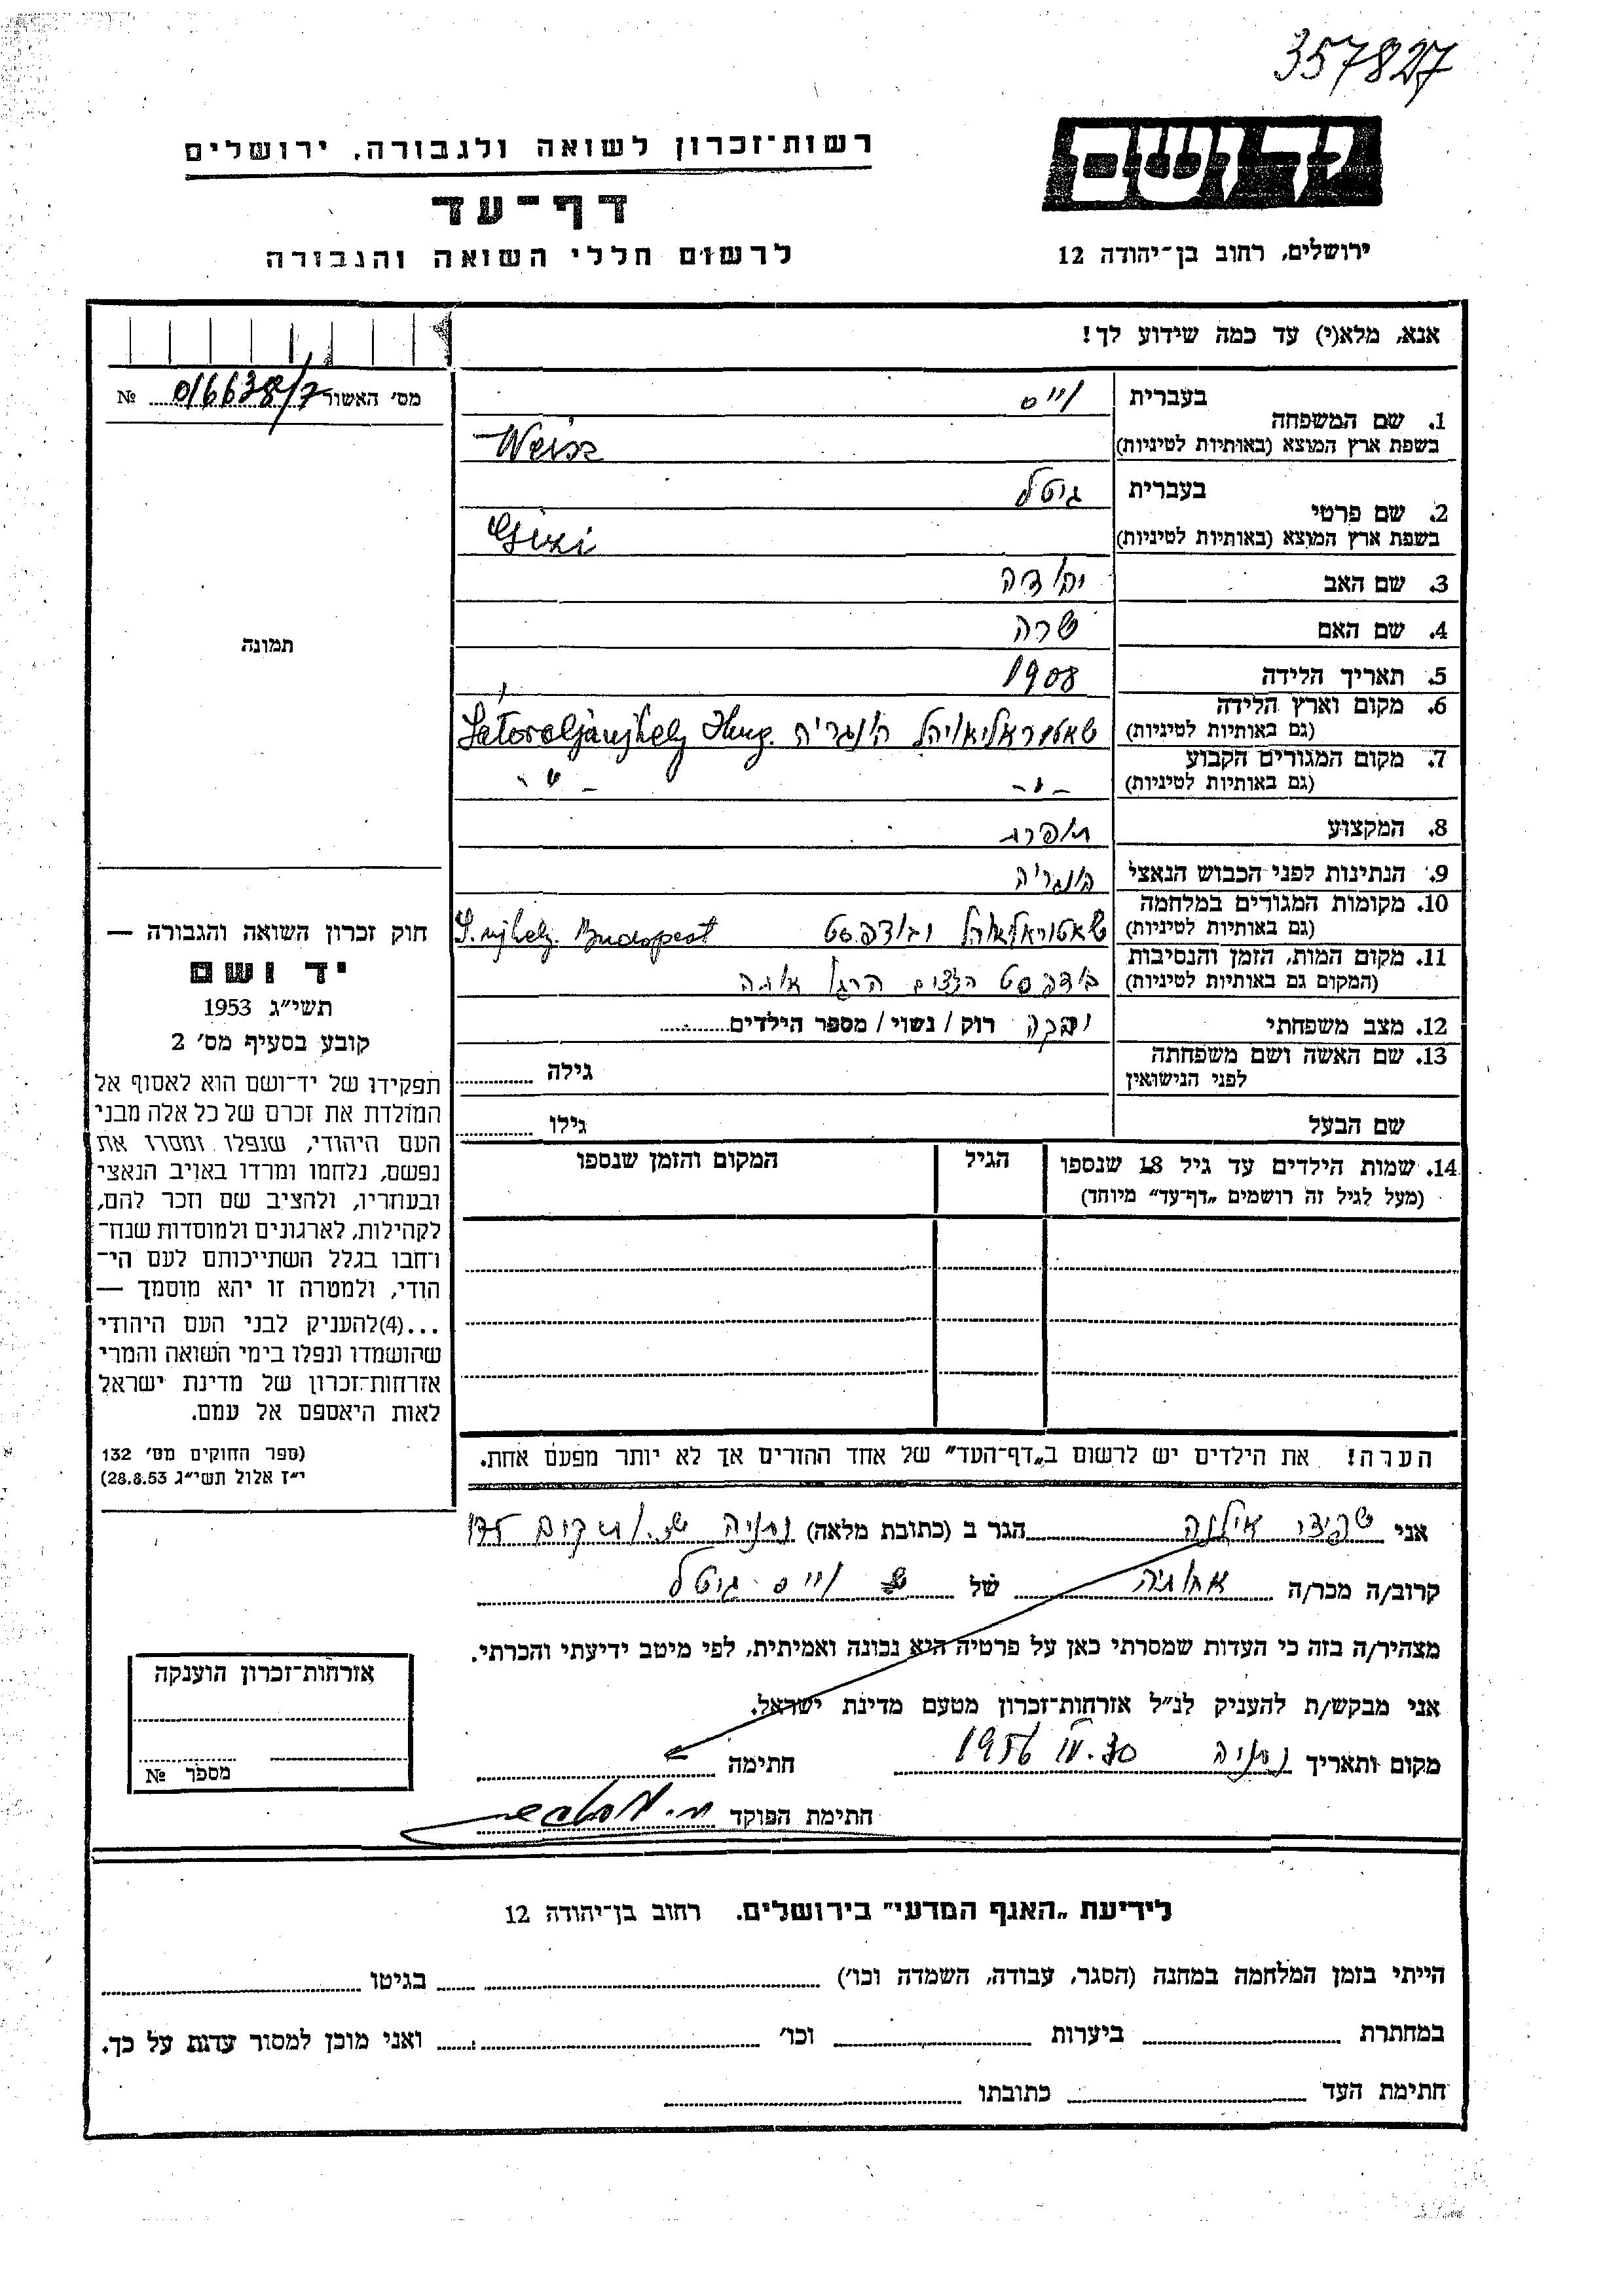 357827
יד ושם
רשות־זכרון לשואה ולגבורה, ירושלים
דף־עד
לרשום חללי השואה והגבורה
ירושלים, רחוב בן־יהודה 12
אנא, מלא(י) עד כמה שידוע לך!
מס׳ האשור 016638/7 №
1. שם המשפחה
בעברית וייס
בשפת ארץ המוצא (באותיות לטיניות) Weisz
2. שם פרטי
בעברית גיטל
בשפת ארץ המוצא (באותיות לטיניות) Gizi
3. שם האב יהודה
4. שם האם שרה
5. תאריך הלידה 1908
6. מקום וארץ הלידה
(גם באותיות לטיניות) הונגריה Hung.
7. מקום המגורים הקבוע
(גם באותיות לטיניות) - " - - " -
8. המקצוע
9. הנתינות לפני הכבוש הנאצי הונגריה
10. מקומות המגורים במלחמה
(גם באותיות לטיניות) ובודפסט S. ujhely. Budapest
11. מקום המות, הזמן והנסיבות
(המקום גם באותיות לטיניות) בודפסט
12. מצב משפחתי רוק / נשוי / מספר הילדים
13. שם האשה ושם משפחתה
לפני הנישואין
גילה
שם הבעל גילו
14. שמות הילדים עד גיל 18 שנספו
(מעל לגיל זה רושמים „דף־עד״ מיוחד)
הגיל
המקום והזמן שנספו
הערה! את הילדים יש לרשום ב„דף־העד״ של אחד ההורים אך לא יותר מפעם אחת.
תמונה
חוק זכרון השואה והגבורה —
יד ושם
תשי״ג 1953
קובע בסעיף מס׳ 2
תפקידו של יד־ושם הוא לאסוף אל
המולדת את זכרם של כל אלה מבני
העם היהודי, שנפלו ומסרו את
נפשם, נלחמו ומרדו באויב הנאצי
ובעוזריו, ולהציב שם וזכר להם,
לקהילות, לארגונים ולמוסדות שנח־
רחבו בגלל השתייכותם לעם הי־
הודי, ולמטרה זו יהא מוסמך —
...(4)להעניק לבני העם היהודי
שהושמדו ונפלו בימי השואה והמרי
אזרחות־זכרון של מדינת ישראל
לאות היאספם אל עמם.
(ספר החוקים מס׳ 132
י״ז אלול תשי״ג 28.8.53)
אני שפיצר אילנה הגר ב (כתובת מלאה) נתניה
קרוב/ה מכר/ה של וייס גיטל
מצהיר/ה בזה כי העדות שמסרתי כאן על פרטיה היא נכונה ואמיתית, לפי מיטב ידיעתי והכרתי.
אני מבקש/ת להעניק לנ״ל אזרחות־זכרון מטעם מדינת ישראל.
מקום ותאריך נתניה 1956 חתימה
חתימת הפוקד
אזרחות־זכרון הוענקה
מספר №
לידיעת „האגף המדעי״ בירושלים. רחוב בן־יהודה 12
הייתי בזמן המלחמה במחנה (הסגר, עבודה, השמדה וכו׳) בגיטו
במחתרת ביערות וכו׳ ואני מוכן למסור עדות על כך.
חתימת העד כתובתו